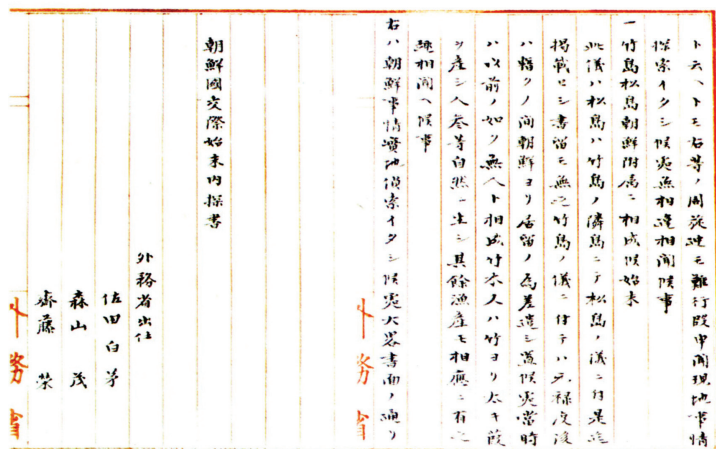 ト云ヘトモ右等ノ周旋連モ難行段申聞現地事情
探索イタシ候処無相違相聞候事
一竹島松島朝鮮附属ニ相成候始末
此儀ハ松島ハ竹島ノ隣島ニテ松島ノ儀ニ付是迄
掲載セシ書留モ無之竹島ノ儀ニ付テハ元禄度後
ハ暫クノ間朝鮮ヨリ居留ノ為差遣シ置候処当時
ハ以前ノ如ク無人ト相成竹木又ハ竹ヨリ太キ葭
ヲ産シ人参等自然ニ生シ其餘漁産モ相應ニ有之
趣相聞ヘ候事
右ハ朝鮮事情實地偵索イタシ候処大畧書面ノ通リ
外務省
朝鮮國交際始末内探書
外務省出仕
佐田白茅
森山茂
齋藤榮
外務省